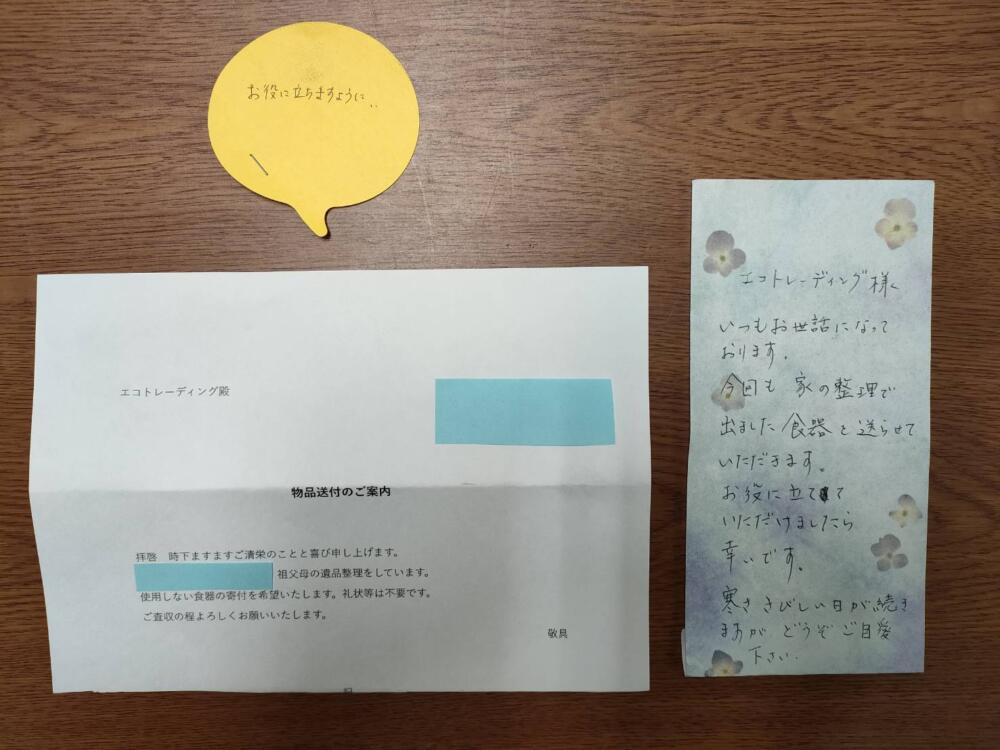 お役に立ちますように..
エコトレーディング殿
物品送付のご案内
拝啓　時下ますますご清栄のことと喜び申し上げます。
祖父母の遺品整理をしています。
使用しない食器の寄付を希望いたします。礼状等は不要です。
ご査収の程よろしくお願いいたします。
敬具
エコトレーディング様
いつもお世話になって
おります。
今回も 家の整理で
出ました 食器を送らせて
いただきます。
お役に立て て
いただけましたら
幸いです。
寒さ きびしい日が続き
ますが どうぞ ご自愛
下さい.